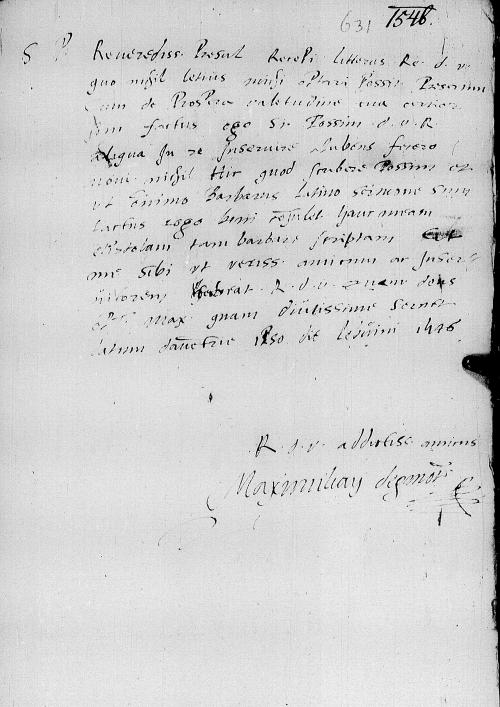 631 1546.
S P Reverediss. Presul Recepi litteras Re. d. v.
quo nihil letius mihi optari possit Presertim
cum de Prospera valetudine tua certior
sim factus ego si Possim d. v. R
aliqua In re Inservire lubens
novi nihil Hic quod scribere Possim et
ut omnino Barbarus latino sermone sum
factus rogo boni consulet hanc meam
epistolam tam barbare scriptam
me sibi ut veriss. amicum ac
R. d. v. quam deus
opt max. quam diutissime servet
datum ipso die 1546
R. d. v. addictiss amicus
Maximilian degmont